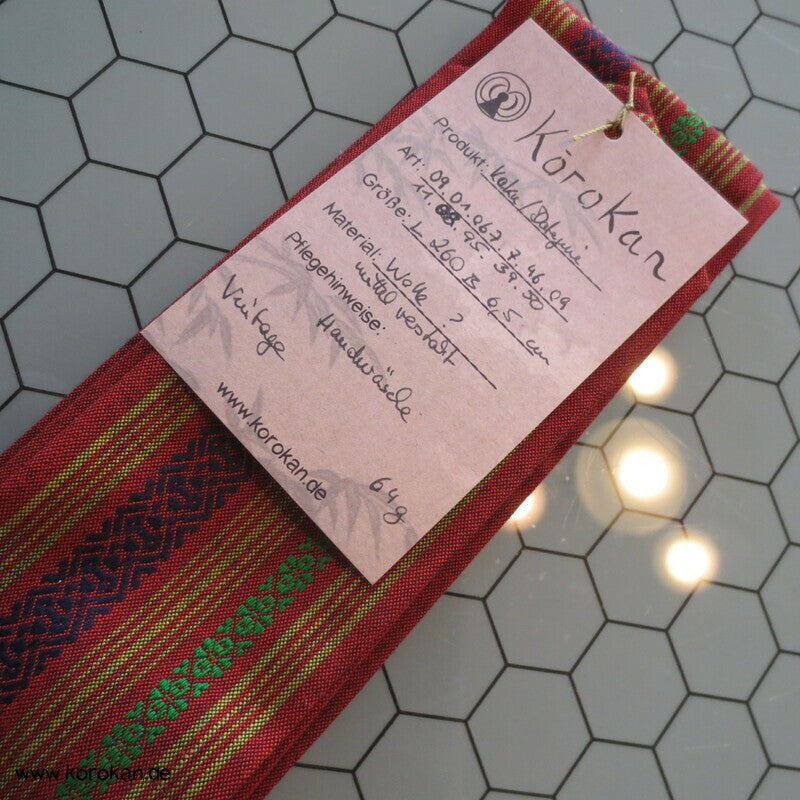 KōroKan
Produkt: Kaku/Datejime
Art.: 09.01.067.7.46.09
11.08.95.39.50
Größe: L 260 B 6,5 cm
Material: Wolle ?
mittel verstärkt
Pflegehinweise:
Handwäsche
Vintage
www.korokan.de
64g
www.korokan.de